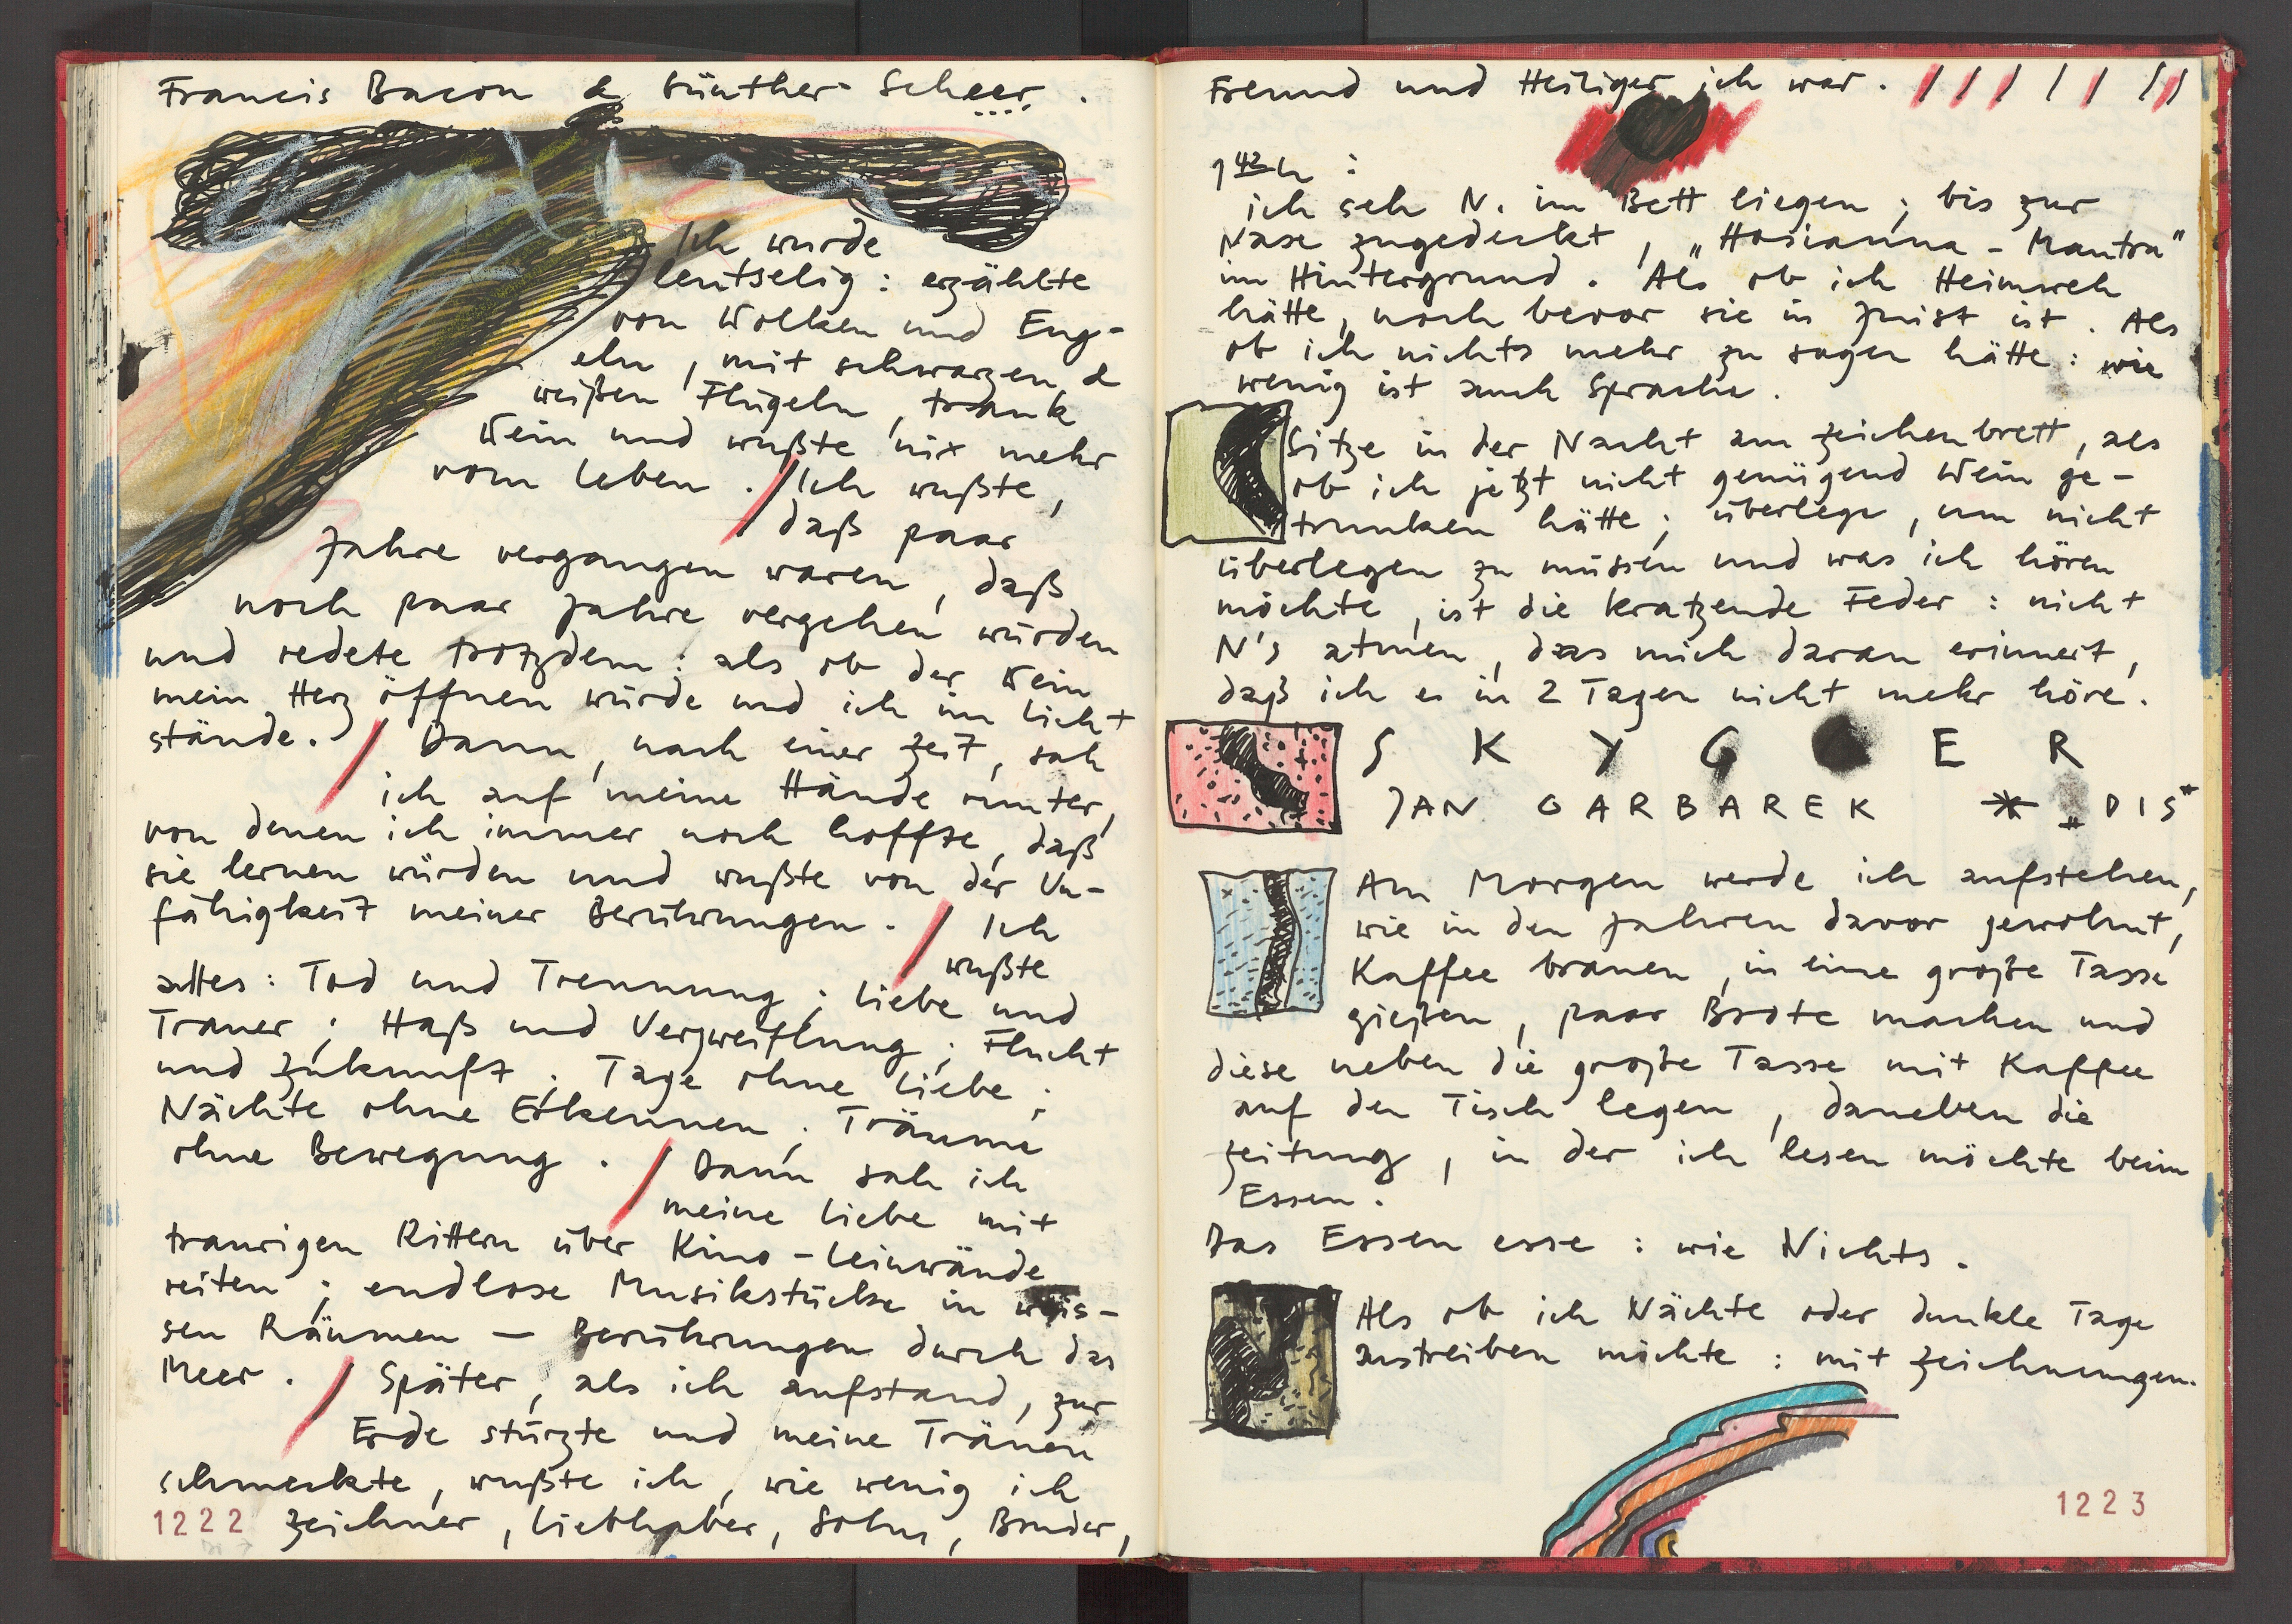 Francis Bacon & Günther Scheer.
Ich wurde
leutselig: erzählte
von Wolken und Eng-
eln, mit schwarzen &
weißen Flügeln, trank
Wein und wußte nix mehr
vom Leben. / Ich wußte,
daß paar
Jahre vergangen waren, daß
noch paar Jahre vergehen würden
und redete trotzdem: als ob der Wein
mein Herz öffnen würde und ich im Licht
stände. / Dann, nach einer Zeit, sah
ich auf meine Hände runter,
von denen ich immer noch hoffte, daß
sie lernen würden und wußte von der Un-
fähigkeit meiner Berührungen. / Ich
wußte
alles: Tod und Trennung; Liebe und
Trauer; Haß und Verzweiflung; Flucht
und Zukunft; Tage ohne Liebe;
Nächte ohne Erkennen; Träume
ohne Bewegung. / Dann sah ich
meine Liebe mit
traurigen Rittern über Kino-Leinwände
reiten; endlose Musikstücke in weis-
sen Räumen — Berührungen durch das
Meer. / Später, als ich aufstand, zur
Erde stürzte und meine Tränen
schmeckte, wußte ich, wie wenig ich
1222 Zeichner, Liebhaber, Sohn, Bruder,
Freund und Heiliger ich war. / / / / / / /
1 42 h:
ich seh N. im Bett liegen; bis zur
Nase zugedeckt, „Hosianna-Mantra"
im Hintergrund. Als ob ich Heimweh
hätte, noch bevor sie in Juist ist. Als
ob ich nichts mehr zu sagen hätte: wie
wenig ist auch Sprache.
Sitze in der Nacht am Zeichenbrett, als
ob ich jetzt nicht genügend Wein ge-
trunken hätte; überlege, um nicht
überlegen zu müssen und was ich hören
möchte, ist die kratzende Feder: nicht
N's atmen, das mich daran erinnert,
daß ich es in 2 Tagen nicht mehr höre.
S K Y G G E R
JAN GARBAREK * „DIS"
Am Morgen werde ich aufstehen,
wie in den Jahren davor gewohnt,
Kaffee brauen, in eine große Tasse
gießen, paar Brote machen und
diese neben die große Tasse mit Kaffee
auf den Tisch legen, daneben die
Zeitung, in der ich lesen möchte beim
Essen.
Das Essen esse: wie Nichts.
Als ob ich Nächte oder dunkle Tage
austreiben möchte: mit Zeichnungen.
1223